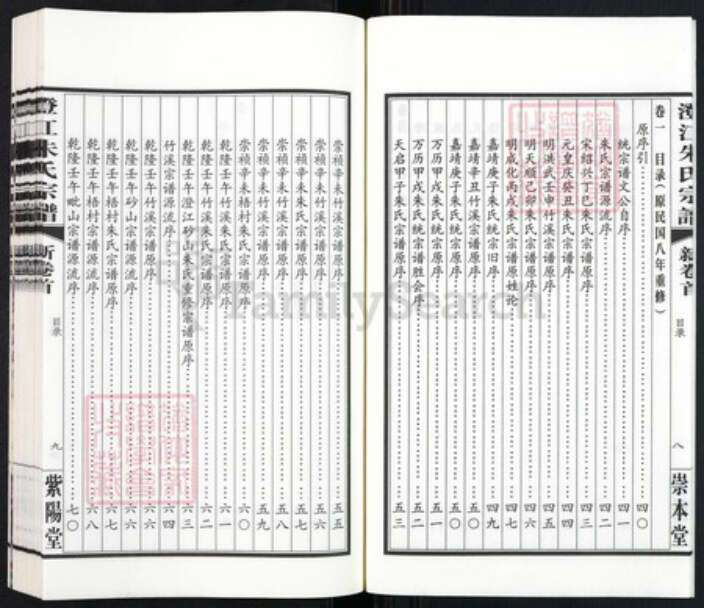 澄江朱氏宗譜 新卷首 目录 八 崇本堂
卷一 目录（原民国八年重修）
原序引……四〇
统宗谱文公自序……四一
朱氏宗谱源流序……四二
宋绍兴丁巳朱氏宗谱原序……四三
元皇庆癸丑朱氏宗谱原序……四四
明洪武壬申竹溪宗谱原序……四五
明天顺己卯朱氏宗谱原序……
明成化丙戌朱氏宗谱原姓论……四七
嘉靖庚子朱氏统宗旧序……四九
嘉靖辛丑竹溪宗谱原序……五〇
嘉靖庚子朱氏统宗谱原序……五〇
万历甲戌朱氏统宗谱原序……五一
万历甲戌朱氏宗谱胜会序……五二
天启甲子朱氏宗谱原序……五三
崇祯辛未朱氏宗谱原序……五五
崇祯辛未朱氏宗谱原序……五六
崇祯辛未朱氏宗谱原序……五七
崇祯辛未朱氏宗谱原序……五八
崇祯辛未梧村朱氏宗谱原序……五九
崇祯辛未梧村朱氏宗谱原序……六〇
乾隆壬午竹溪朱氏宗谱原序……六一
乾隆壬午竹溪朱氏宗谱原序……六二
乾隆壬午澄江砂山朱氏重修宗谱原序……六三
竹溪宗谱源流序……六四
乾隆壬午竹溪宗谱原序……六六
乾隆壬午砂山宗谱源流序……六六
乾隆壬午梧村朱氏宗谱原序……六七
乾隆壬午梧村宗谱源流序……六八
乾隆壬午毗山宗谱源流序……七〇
澄江朱氏宗譜 新卷首 目录 九 紫陽堂
FamilySearch